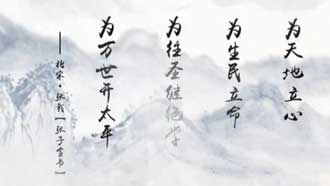 为天地立心
为生民立命
为往圣继绝学
为万世开太平
——北宋·张载【张子全书】